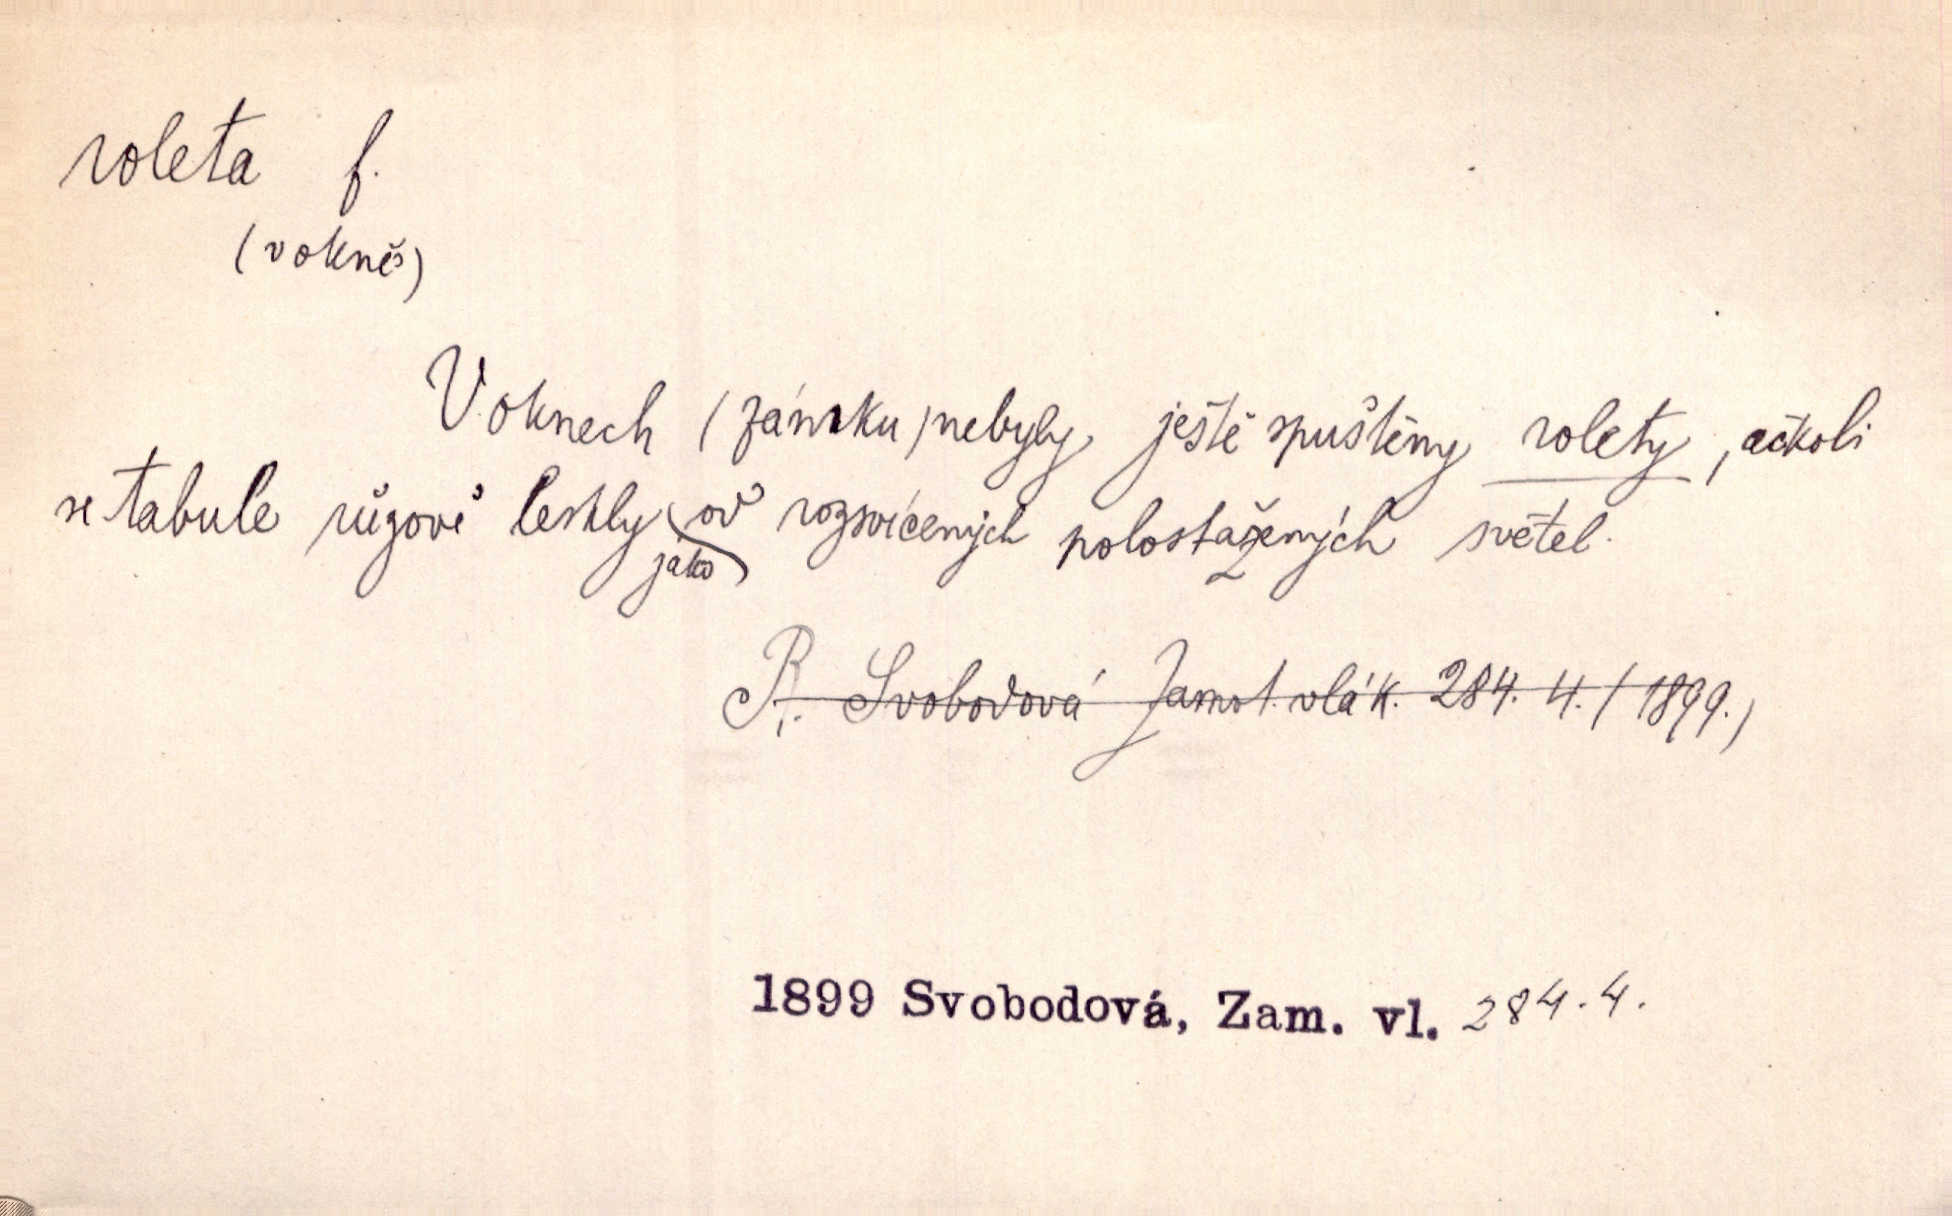 roleta f.
(v okně)
V oknech (zámku) nebyly ještě spuštěny rolety, ačkoli
se tabule růžově leskly jako od rozsvícených polostažených světel.
R. Svobodová Zamot. vlák. 284. 4. (1899.)
1899 Svobodová, Zam. vl. 284.4.